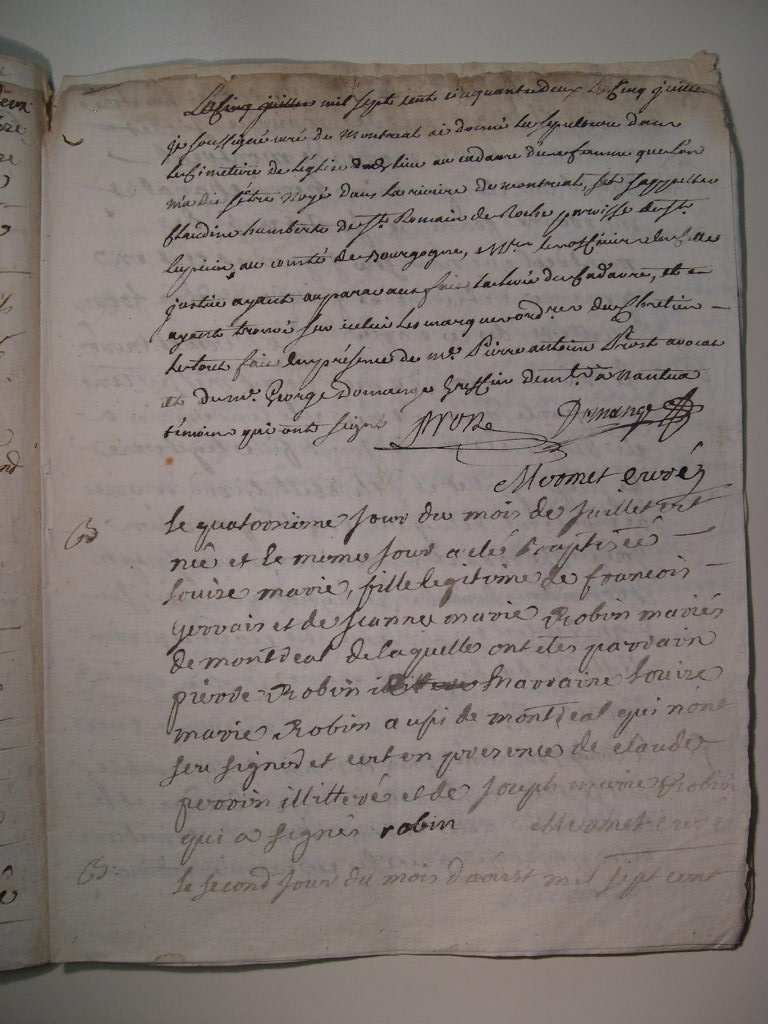 Le Cinq juillet mil sept cent cinquante deux Le Cinq juillet
je soussigné curé de Montreal ai donné la sepulture dans
le cimetiere de l'église dudit lieu au cadavre d'une femme que l'on
m'a dit s'être noyé dans la riviere de montreal, et s'appeller
Claudine humberte de St. Romain de Roche parroisse de St.
lupicin, au comté de Bourgogne,
justice ayant auparavant fait la levée du Cadavre, et
ayant trouvé sur icelui les marques du Chretien
Le tout fait en présence de mr. Pierre antoine Prost avocat
et du mr. George Domange Greffier demt. à nantua
témoins qui ont signé Prost Domange
Mermet curé
B
le quatorsieme Jour du mois de Juillet est
née et le meme Jour a été baptisée
Louise marie, fille legitime de francois
Gervais et de Jeanne marie Robin mariés
de montreal de laquelle ont etes parrain
pierre Robin marraine Louise
marie Robin aussi de montreal qui n'ont
seu signer et cert en presence de claude
perrin illitteré et de Joseph marie Robin
qui a signés robin Mermet curé
B
le second Jour du mois d'aoust mil sept cent